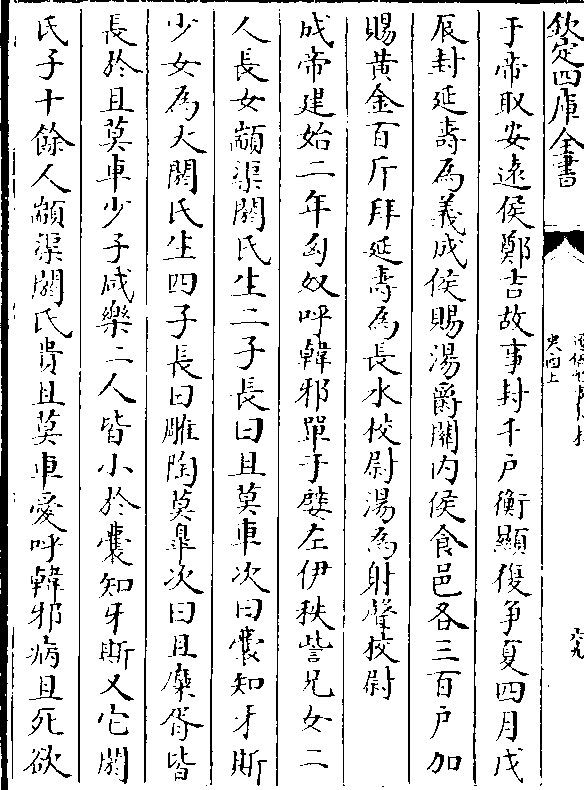 欽定四庫全書
于帝取安遠侯鄭吉故事封千戶衡顯復爭夏四月戊
辰封延壽為義成侯賜湯爵關内侯食邑各三百戶加
賜黄金百斤拜延壽為長水校尉湯為射聲校尉
成帝建始二年匈奴呼韓邪單于嬖左伊秩訾兄女二
人長女顓渠閼氏生二子長曰且莫車次曰囊知牙斯
少女為大閼氏生四子長曰雕陶莫臯次曰且麋胥皆
長於且莫車少子咸樂二人皆小於囊知牙斯又它閼
氏子十餘人顓渠閼氏貴且莫車愛呼韓邪病且死欲